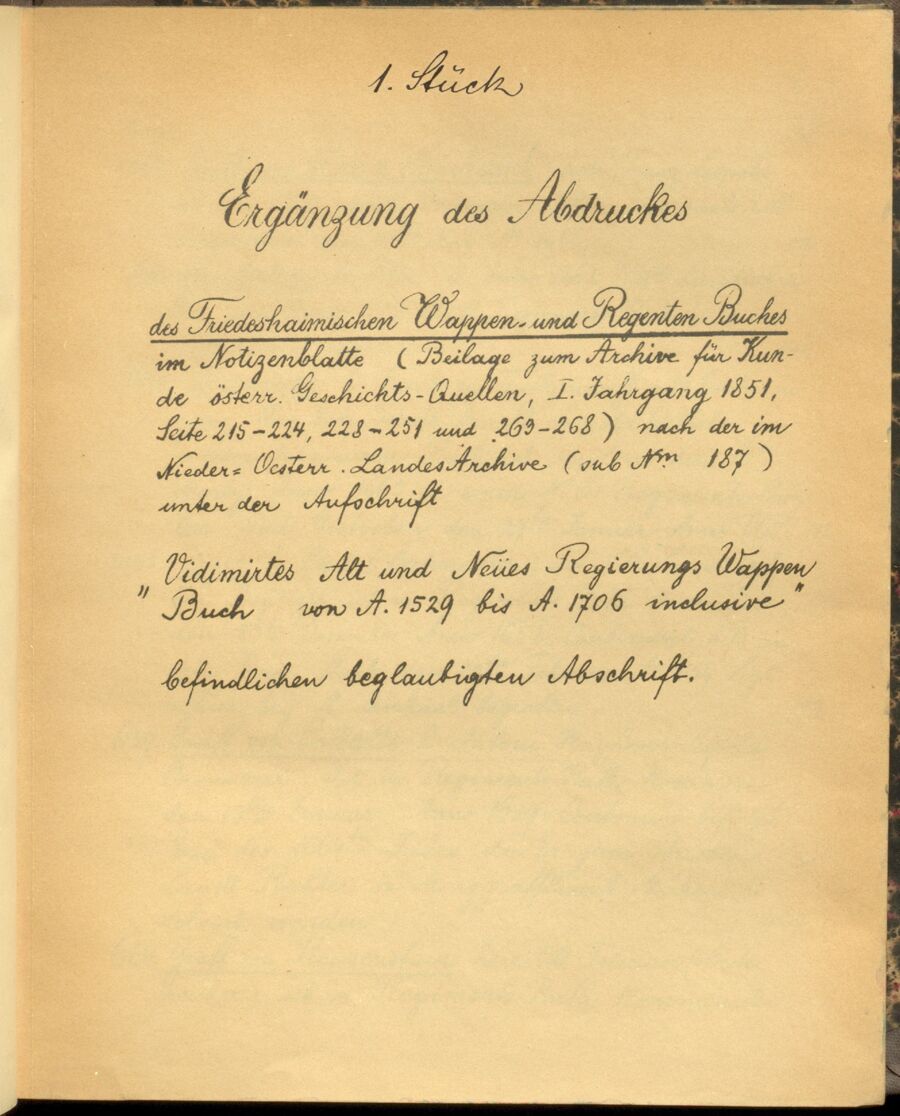 1. Stück
Ergänzung des Abdruckes
des Friedeshaimischen Wappen- und Regenten Buches
im Notizenblatte (Beilage zum Archive für Kun-
de österr. Geschichts-Quellen, I. Jahrgang 1851,
Seite 215-224, 228-251 und 263-268) nach der im
Nieder= Oesterr. Landes Archive (sub Nrn 187)
unter der Aufschrift
"Vidimirtes Alt und Neües Regierungs Wappen
Buch von A. 1529 bis A. 1706 inclusive"
befindlichen beglaubigten Abschrift.